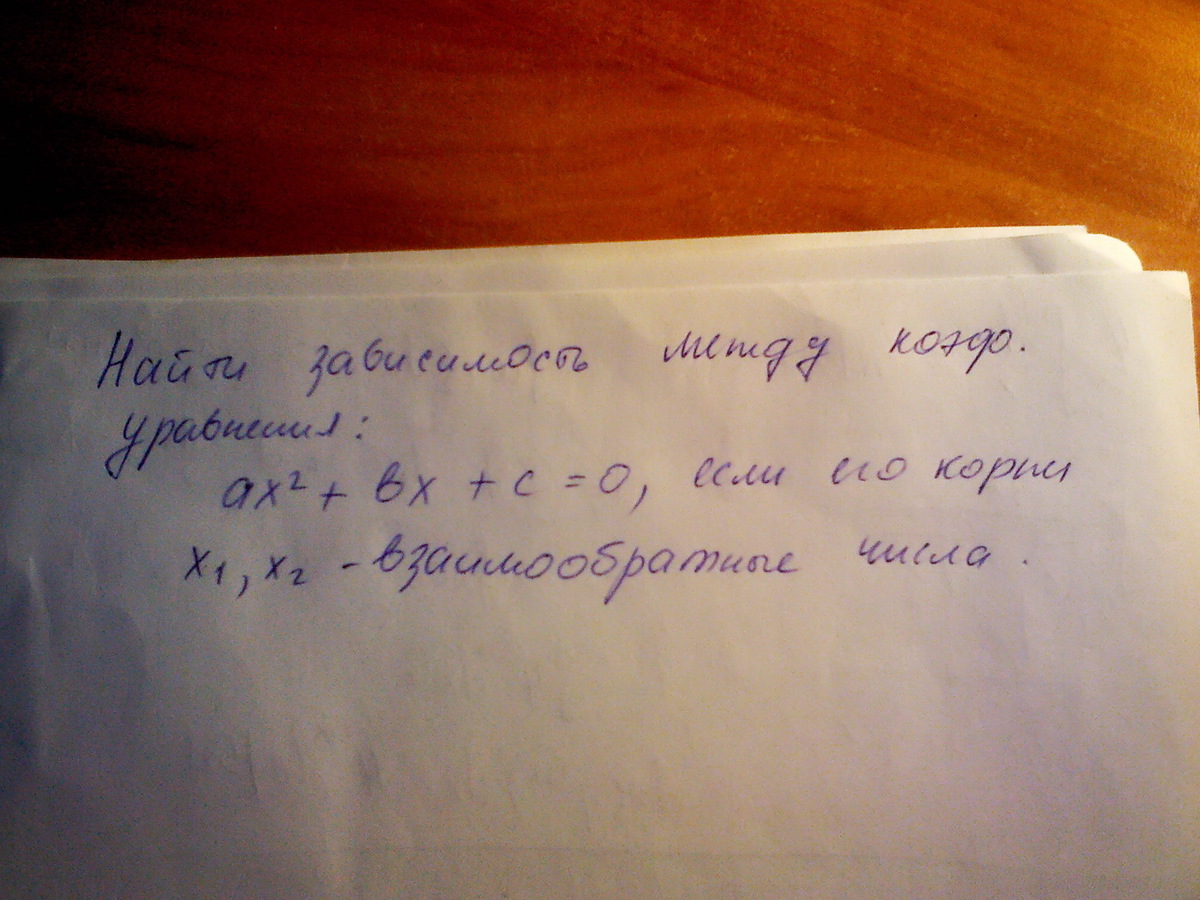 Найти зависимость между коэф.
уравнения:
ax² + bx + c = 0, если его корни
x₁, x₂ - взаимообратные числа.